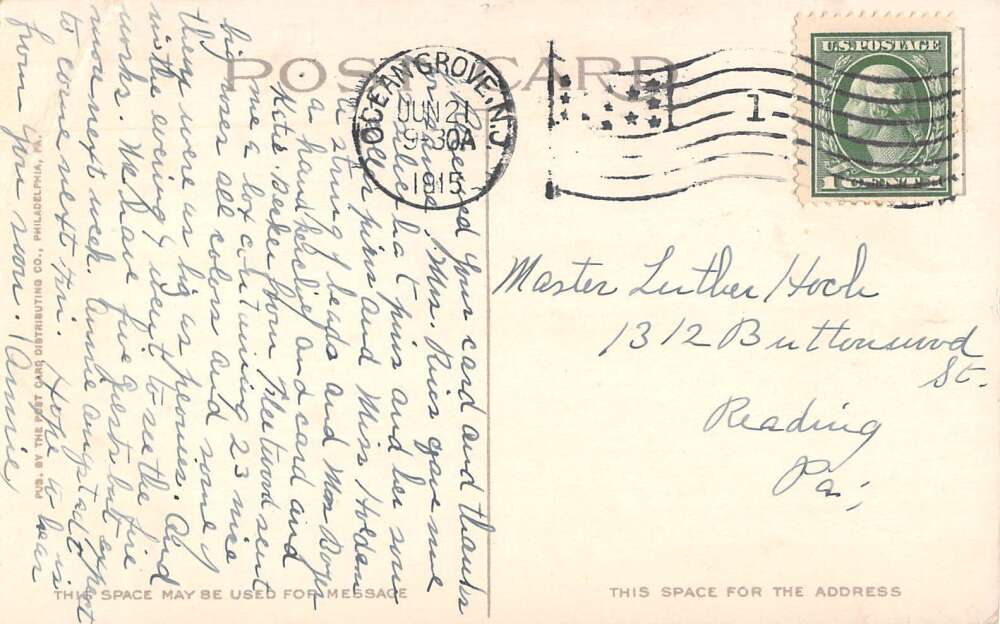 POST CARD
OCEAN GROVE, N.J.
JUN 21
9-30A
1915
1
U.S. POSTAGE
1 CENT 1
your card and thanks
for same. Mrs. Rines gave me
hat pins and her some
pins and Miss Holden
a string of beads and Mrs
a handkerchief and card and
Kate Becker from Fleetwood sent
me a box containing 23 nice
big ones all colors and some of
them were as big as peonies. And
in the evening I went to see the fire
works. We have five guests but expect
more next week. Annie is
to come next Fri. Hope to hear
from you soon. Annie,
Master Luther Hoch
1312 Buttonwood
St.
Reading
Pa;
PUB. BY THE POST CARD DISTRIBUTING CO., PHILADELPHIA, PA.
THIS SPACE MAY BE USED FOR MESSAGE
THIS SPACE FOR THE ADDRESS